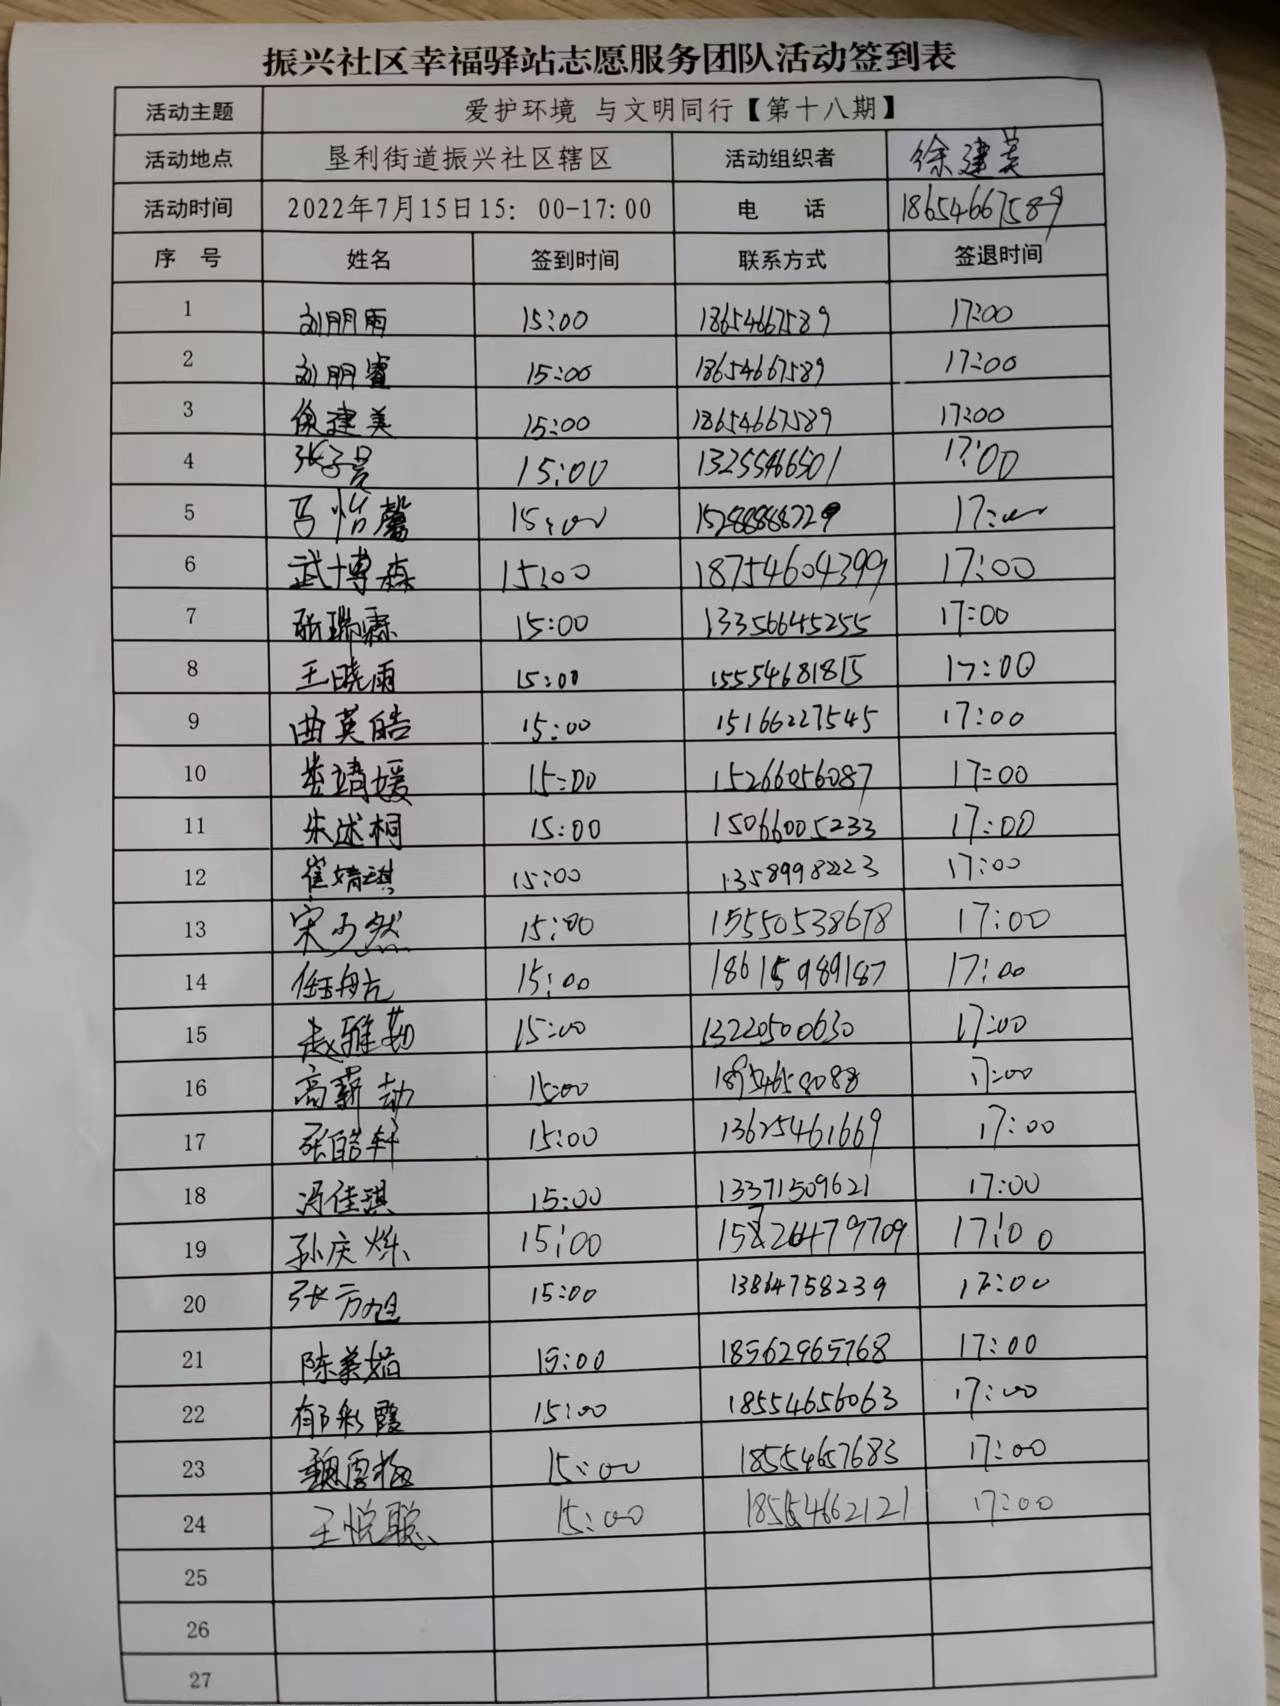 振兴社区幸福驿站志愿服务团队活动签到表
活动主题 爱护环境 与文明同行【第十八期】
活动地点 垦利街道振兴社区辖区 活动组织者 徐建美
活动时间 2022年7月15日15：00-17:00 电 话 18654667589
序 号 姓名 签到时间 联系方式 签退时间
1 刘朋雨 15:00 18654667589 17:00
2 刘朋睿 15:00 18654667589 17:00
3 徐建美 15:00 18654667589 17:00
4 张子昂 15:00 13255466501 17:00
5 马怡馨 15:00 17:00
6 武博森 15:00 18754604399 17:00
7 张瑞霖 15:00 13356645255 17:00
8 王晓雨 15:00 15554681815 17:00
9 曲英皓 15:00 15166227545 17:00
10 娄靖媛 15:00 15266056087 17:00
11 朱述桐 15:00 15066005233 17:00
12 崔婧琪 15:00 13589982223 17:00
13 宋子然 15:00 15550538678 17:00
14 任航 15:00 18615989187 17:00
15 赵雅勤 15:00 13220500630 17:00
16 高薪劼 15:00 18954658088 17:00
17 张皓轩 15:00 13625461669 17:00
18 冯佳琪 15:00 13371509621 17:00
19 孙庆烁 15:00 17:00
20 张方旭 15:00 13864758239 17:00
21 陈美娟 15:00 18562965768 17:00
22 郁彩霞 15:00 18554656063 17:00
23 魏雪梅 15:00 18554657683 17:00
24 王悦聪 15:00 18554662121 17:00
25
26
27